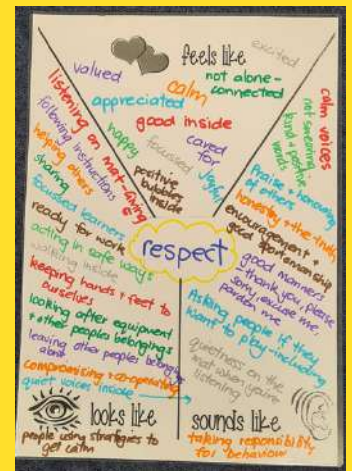 feels like
excited
valued
not alone -
connected
calm
appreciated
good inside
happy
cared
for
focussed
joyful
positive
bubbles
inside
listening on mat - giving
following instructions
helping others
sharing
focussed learners
ready for work
acting in safe ways
walking inside
keeping hands + feet to
ourselves
looking after equipment
+ other peoples belongings
leaving other peoples belongings
alone
compromising + co-operating
quiet voices inside
looks like
people using strategies to
get calm
respect
calm voices
not
kind + positive
words
Praise + honouring
of others
honesty + the truth
encouragement +
good sportsmanship
good manners
- thank you, please
sorry, excuse me,
pardon me
Asking people if they
want to play - including
quietness on the
mat when you're
listening
sounds like
taking responsibility
for behaviour